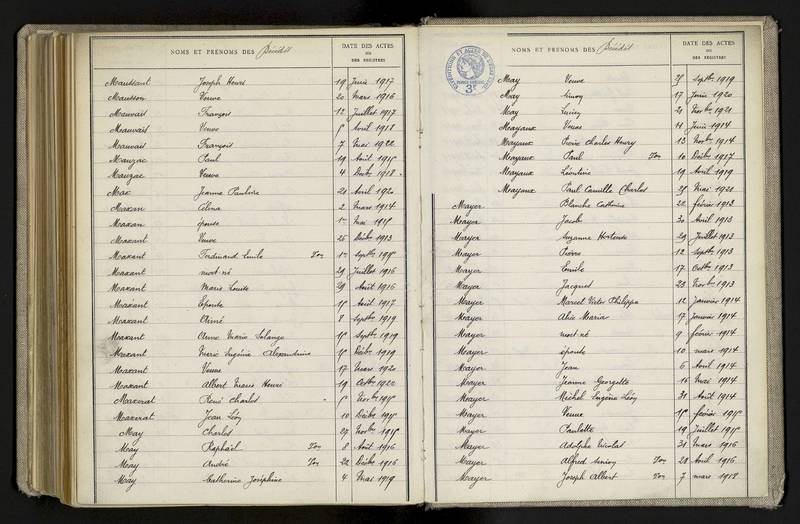 NOMS ET PRÉNOMS DES Décédés
DATE DES ACTES
OU
DES REGISTRES
Maussant Joseph Henri 19 Juin 1917
Mausson Veuve 20 Mars 1916
Mauvais François 1er Juillet 1917
Mauvais Veuve Avril 1918
Mauvais François 7 Mai 1922
Mauzac Paul 19 Août 1915
Mauzac Veuve 4 Décbre 1918
Max Jeanne Pauline 21 Avril 1920
Maxan Célina 2 Mars 1914
Maxan épouse Mai 1915
Maxant Veuve 25 Décbre 1913
Maxant Ferdinand Emile Ton 1er Septbre
Maxant mort-né 29 Juillet 1916
Maxant Marie Louise 29 Août 1916
Maxant Epouse Août 1917
Maxant Aimé 8 Septbre 1919
Maxant Anne Marie Solange Septbre 1919
Maxant Marie Eugénie Alexandrine Décbre 1919
Maxant Veuve 17 Mars 1920
Maxant Albert Marie Henri 19 Octbre 1920
Maxerat René Charles Novbre 1915
Maxerat Jean Léon 10 Décbre 1915
May Charles 27 Novbre 1915
May Raphaël Ton 8 Août 1916
May André Ton 22 Décbre 1916
May Catherine Joséphine 4 Mai 1919
NOMS ET PRÉNOMS DES Décédés
DATE DES ACTES
OU
DES REGISTRES
3F
May Veuve Septbre 1919
May Simon 17 Juin 1920
May Lucien 21 Novbre 1921
Mayaux Veuve 11 Juin 1914
Mayaux Pierre Charles Henry 13 Novbre 1914
Mayaux Paul Ton 10 Décbre 1917
Mayaux Léontine 19 Avril 1919
Mayaux Paul Camille Charles Mai 1920
Mayer Blanche Catherine 22 février 1913
Mayer Jacob 30 Avril 1913
Mayer Suzanne Hortense 29 Juillet 1913
Mayer Pierre 12 Septbre 1913
Mayer Emile 17 Octbre 1913
Mayer Jacques 23 Novbre 1913
Mayer Marcel Victor Philippe 12 Janvier 1914
Mayer Alice Maria 17 Janvier 1914
Mayer mort-né 9 février 1914
Mayer épouse 10 mars 1914
Mayer Jean 6 Avril 1914
Mayer Jeanne Georgette 16 Mai 1914
Mayer Michel Eugène Léon 31 Août 1914
Mayer Veuve février 1915
Mayer Paulette 19 Juillet 1915
Mayer Adolphe Nicolas 31 Mars 1916
Mayer Alfred Simon Ton 28 Avril 1916
Mayer Joseph Albert Ton 7 mars 1918